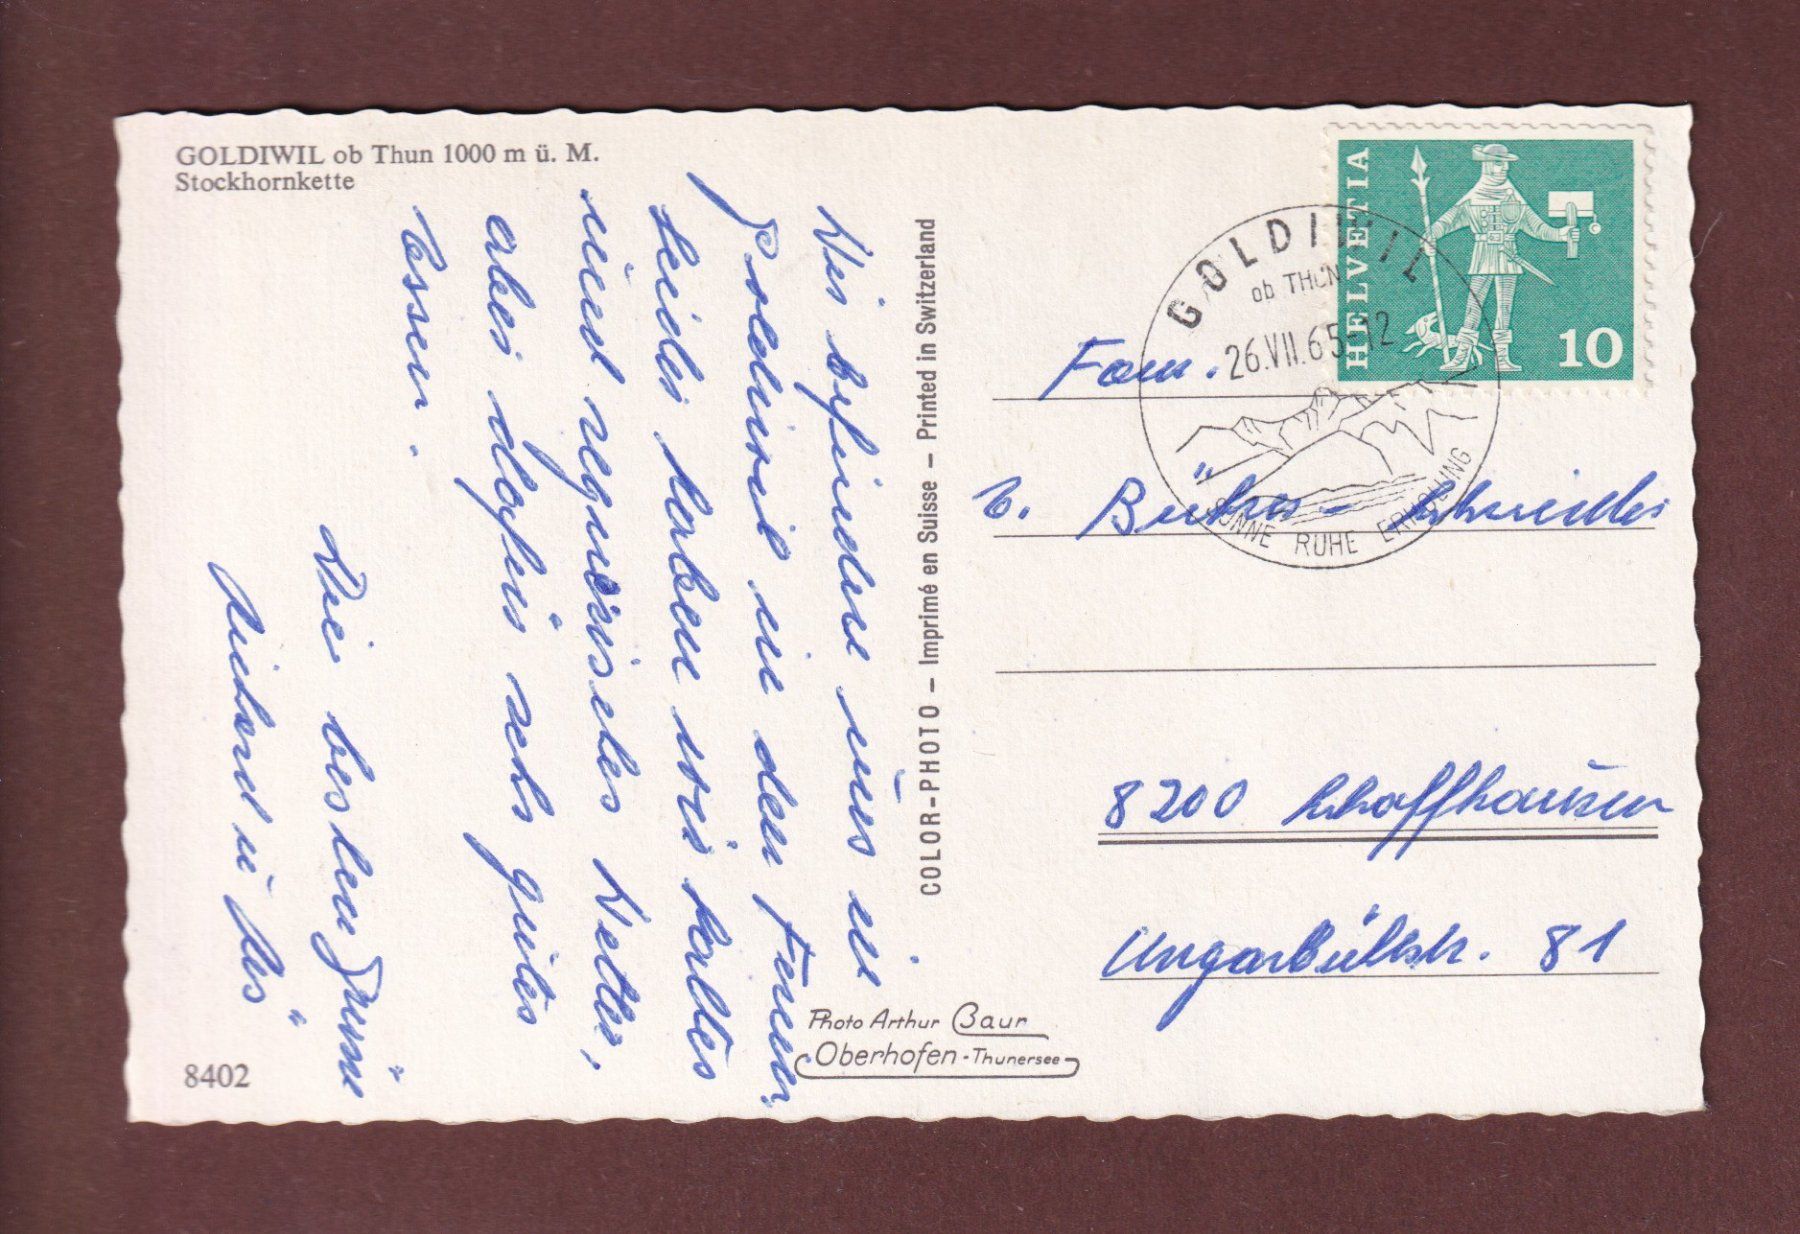 GOLDIWIL ob Thun 1000 m ü. M.
Stockhornkette
Wir befinden uns in
Goldiwil in den Ferien.
Leider haben wir kaltes
und regnerisches Wetter,
aber dafür sehr gutes
Essen.
Die besten Grüsse
COLOR-PHOTO – Imprimé en Suisse – Printed in Switzerland
8402
Photo Arthur Baur
Oberhofen - Thunersee
HELVETIA
10
GOLDIWIL
ob THUN
26.VII.65-12
SONNE RUHE ERHOLUNG
Fam.
8200 Schaffhausen
Ungarbühlstr. 81